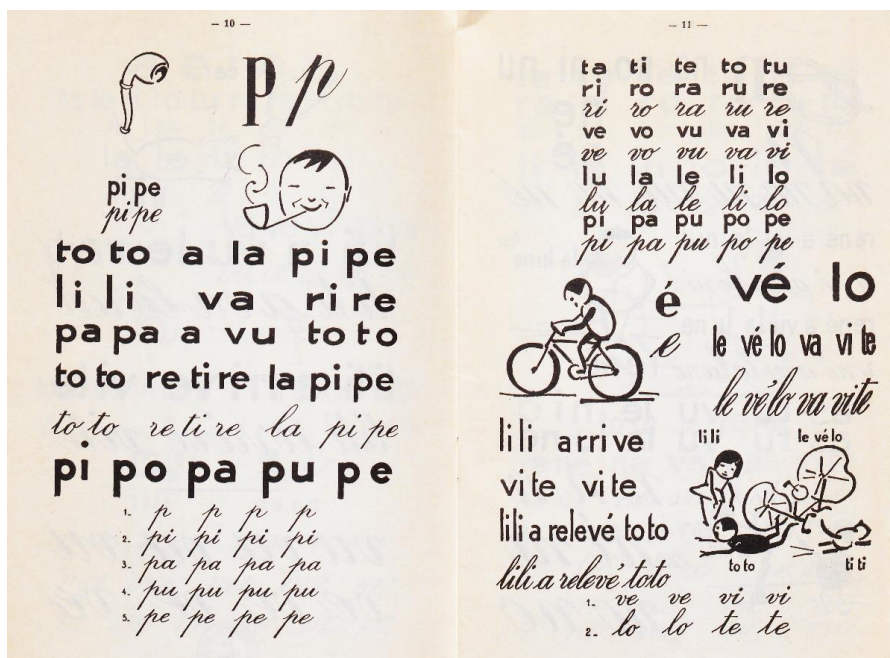 — 10 —
p p
pi pe
pi pe
to to a la pi pe
li li va ri re
pa pa a vu to to
to to re ti re la pi pe
to to re ti re la pi pe
pi po pa pu pe
1. p p p p
2. pi pi pi pi
3. pa pa pa pa
4. pu pu pu pu
5. pe pe pe pe
— 11 —
ta ti te to tu
ri ro ra ru re
ri ro ra ru re
ve vo vu va vi
ve vo vu va vi
lu la le li lo
lu la le li lo
pi pa pu po pe
pi pa pu po pe
é vé lo
é le vé lo va vi te
le vélo va vite
li li a rri ve
vi te vi te
lili a relevé toto
lili a relevé toto
li li
le vé lo
to to
ti ti
1. ve ve vi vi
2. lo lo te te